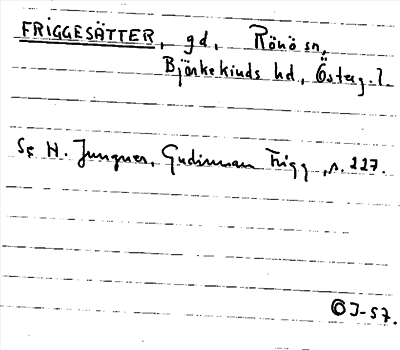 FRIGGESÄTTER, gd, Rönö sn,
Björkekinds hd, Österg.l.
Se H. Jungner, Gudinnan Frigg, s. 227.
OJ-57.